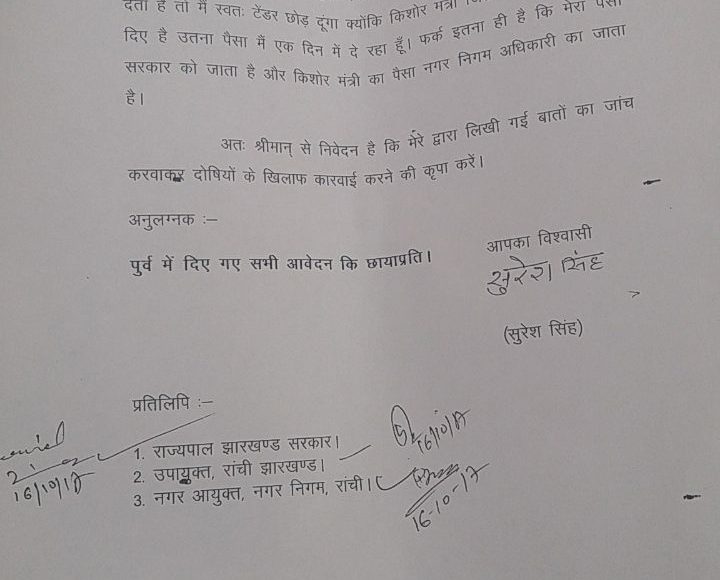 देता है तो मैं स्वतः टेंडर छोड़ दूंगा क्योंकि किशोर मंत्री
दिए है उतना पैसा मैं एक दिन में दे रहा हूँ। फर्क इतना ही है कि मेरा पैसा
सरकार को जाता है और किशोर मंत्री का पैसा नगर निगम अधिकारी का जाता
है।
अतः श्रीमान् से निवेदन है कि मेरे द्वारा लिखी गई बातों का जांच
करवाकर दोषियों के खिलाफ कारवाई करने की कृपा करें।
अनुलग्नक :–
पुर्व में दिए गए सभी आवेदन कि छायाप्रति।
आपका विश्वासी
सुरेश सिंह
(सुरेश सिंह)
प्रतिलिपि :–
1. राज्यपाल झारखण्ड सरकार।
2. उपायुक्त, रांची झारखण्ड।
3. नगर आयुक्त, नगर निगम, रांची।
16/10/17
16/10/17
16-10-17